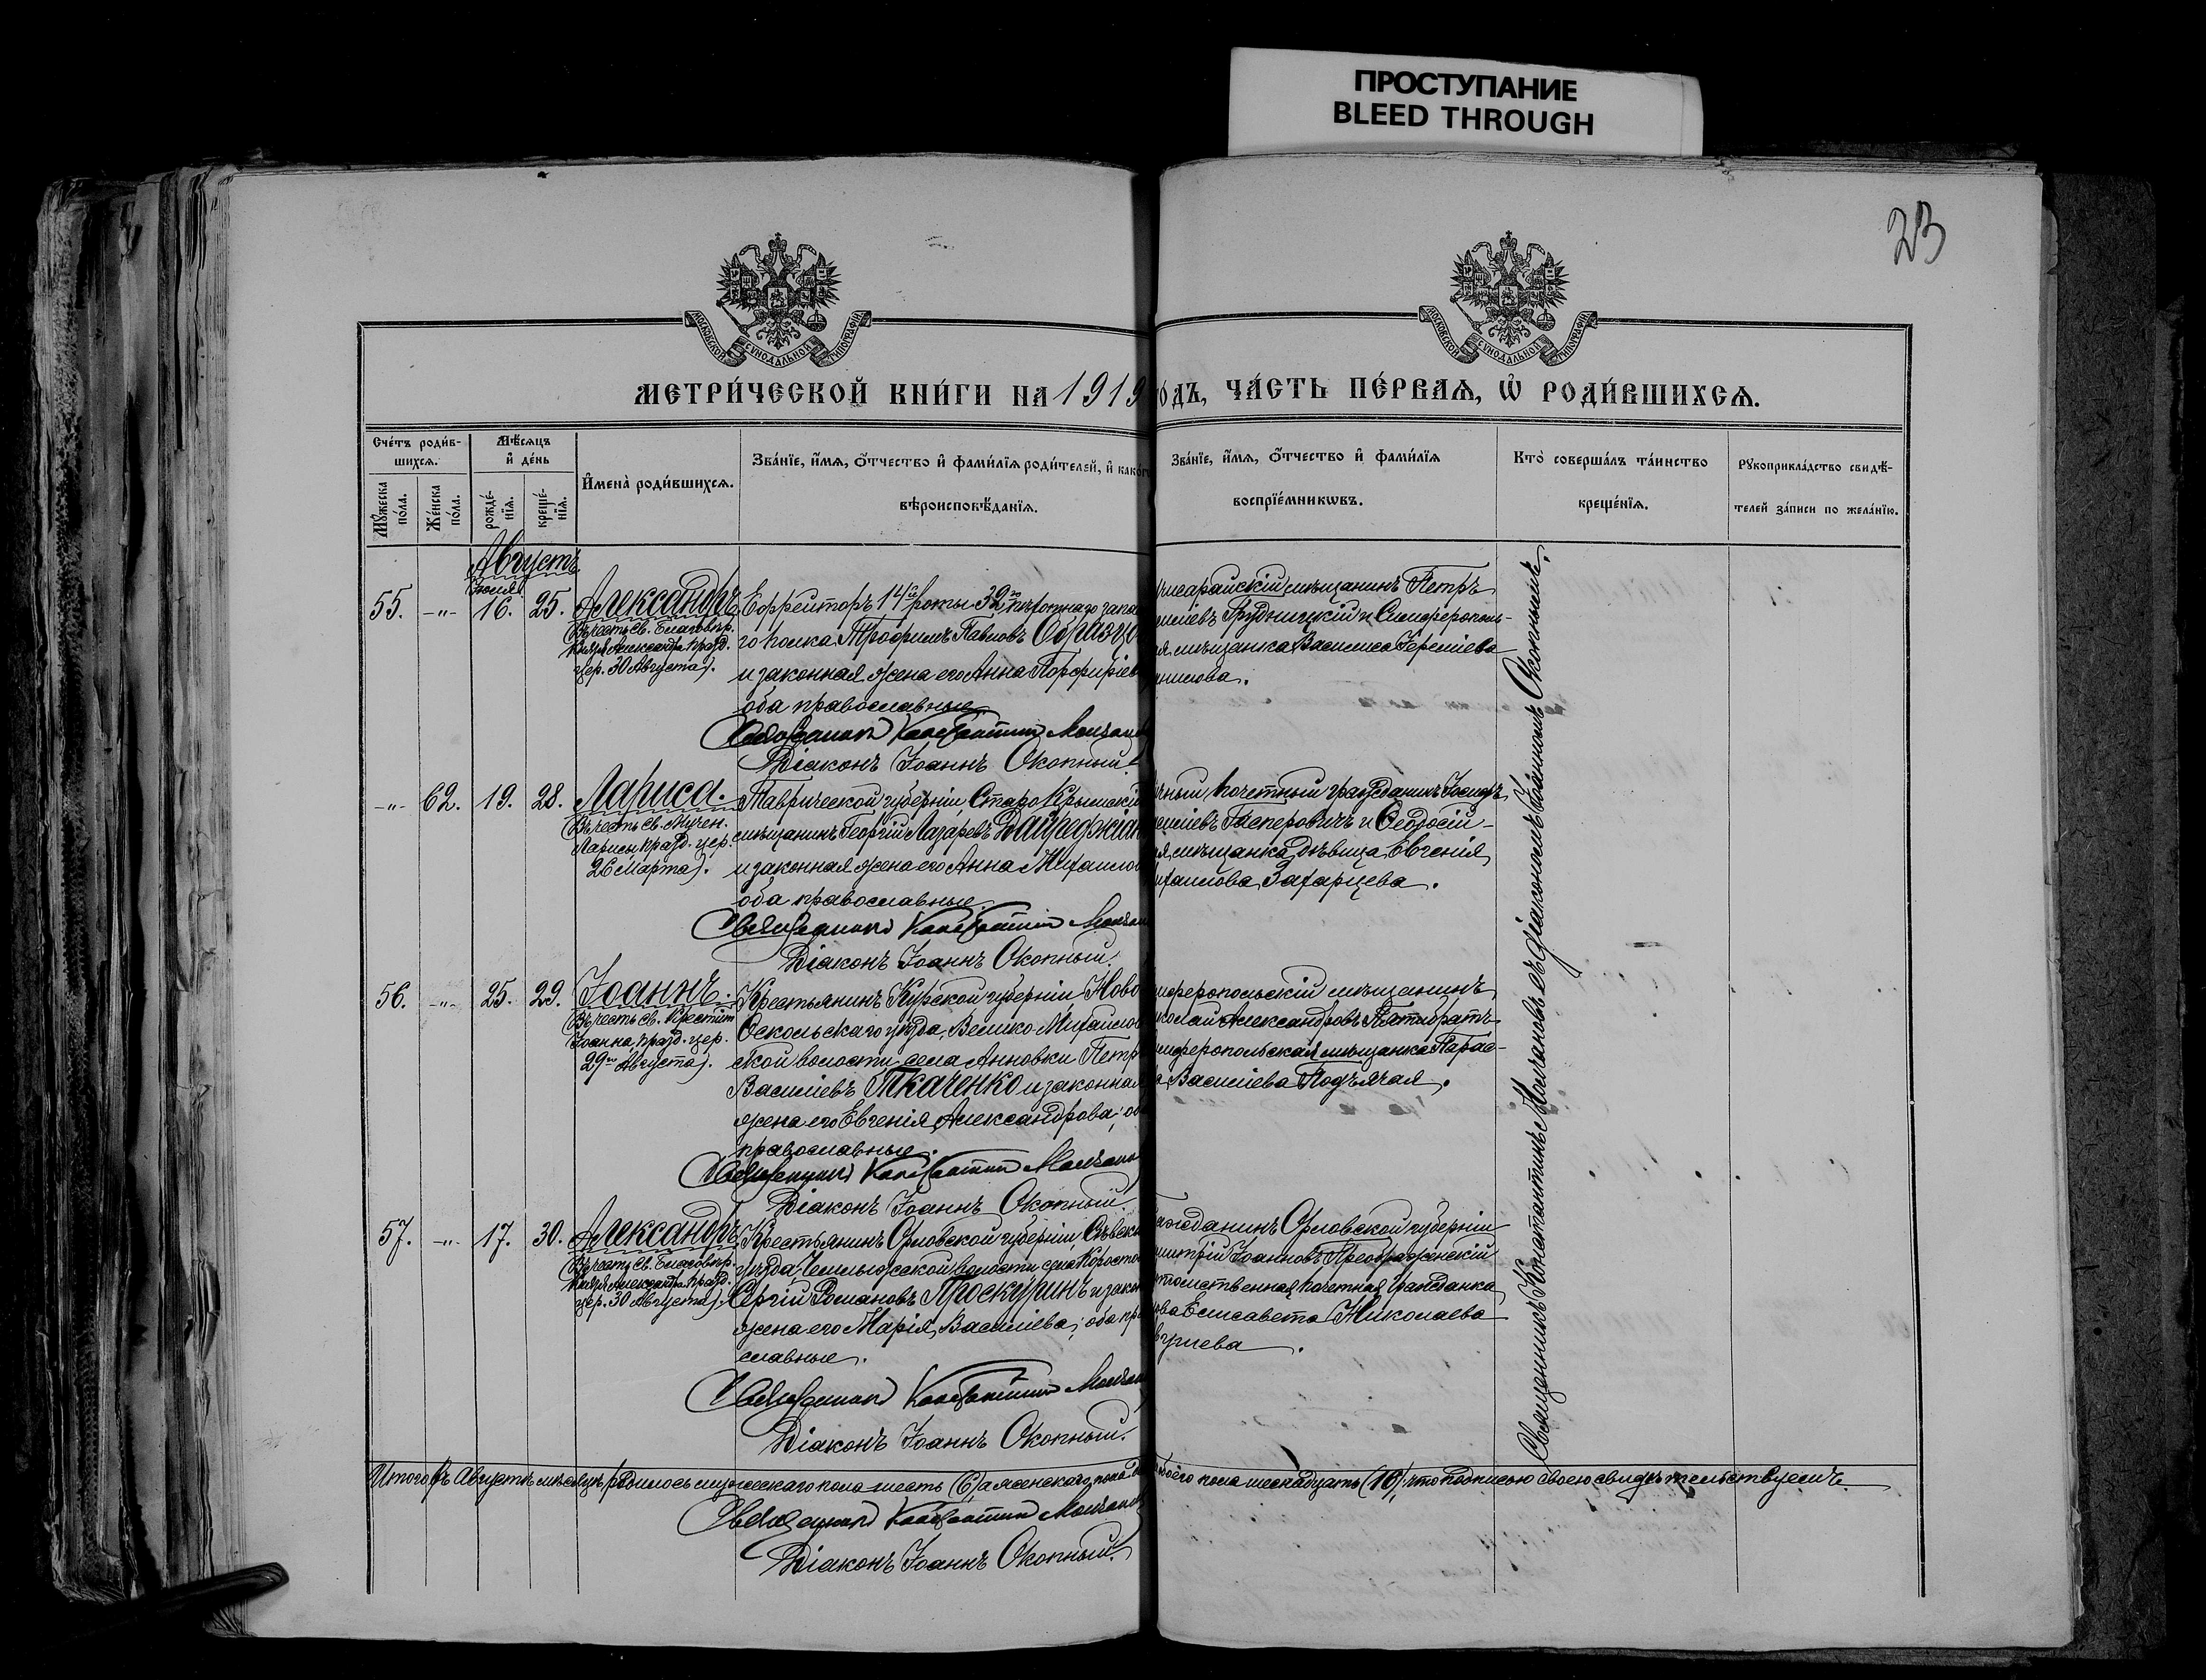 ПРОСТУПАНИЕ
BLEED THROUGH
23
МОСКОВСКОЙ СѴНОДАЛЬНОЙ ТИПОГРАФІИ
МОСКОВСКОЙ СѴНОДАЛЬНОЙ ТИПОГРАФІИ
МЕТРИ́ЧЕСКОЙ КНИ́ГИ НА 1919
ОДЪ, ЧА́СТЬ ПЕ́РВАѦ, Ѡ РОДИ́ВШИХСѦ.
Сче́тъ роди́в-
шихсѧ.
Мѣ́сѧцъ
и҆ де́нь
Мꙋ́жеска
по́ла.
Же́нска
по́ла.
рожде́-
нїѧ.
креще́-
нїѧ.
И҆мена̀ роди́вшихсѧ.
Зва́нїе, и҆́мѧ, ѻ҆́тчество и҆ фами́лїѧ роди́телей, и҆ како́г
вѣроисповѣ́данїѧ.
Зва́нїе, и҆́мѧ, ѻ҆́тчество и҆ фами́лїѧ
воспрїе́мникѡвъ.
Кто̀ соверша́лъ та́инство
креще́нїѧ.
Рꙋкоприкла́дство свидѣ́-
телей за́писи по жела́нїю.
Августъ
Іюля
55. -"- 16. 25. Александръ
Въ честь св. Благовѣр.
Князя Александра празд.
цер. 30 Августа).
Ефрейторъ 14й роты 32го пѣхотнаго запа
го полка Трофимъ Павловъ Образцо
и законная жена его Анна Порфиріев
оба православные.
Священникъ Константинъ Молчанов
Діаконъ Іоаннъ Окопный.
мѣщанинъ Петръ
Грудницкій и Симферополь-
я мѣщанка Василиса Терентіева
нилова.
-"- 62. 19. 28. Лариса.
Въ честь св. Мучен.
Ларисы празд. цер.
26 Марта).
Таврической губерніи, Старо Крымскій
мѣщанинъ Георгій Лазаревъ Дайреджіан
и законная жена его Анна Михайлов
оба православные.
Священникъ Константинъ Молчан
Діаконъ Іоаннъ Окопный.
чный почетный гражданинъ Іосифъ
Гасперовичъ и Ѳеодосій-
я мѣщанка дѣвица Евгенія
ихайлова Захарцева.
56. -"- 25. 29. Іоаннъ.
Въ честь св. Крестит.
Іоанна, празд. цер.
29го Августа).
Крестьянинъ Курской губерніи Ново
Оскольскаго уѣзда, Велико-Михайлов
ской волости села Анновки Петр
Василіевъ Ткаченко и законная
жена его Евгенія Александрова; об
православные.
Священникъ Константинъ Молчанов
Діаконъ Іоаннъ Окопный.
мферопольскій мѣщанинъ
колай Александровъ Пятибратъ-
имферопольская мѣщанка Парас-
а Василіева Подъячая.
57. -"- 17. 30. Александръ
Въ честь св. Благовѣр.
Князя Александра празд.
цер. 30 Августа).
Крестьянинъ Орловской губерніи, Сѣвск
уѣзда, волости села
Сергій Романовъ Проскуринъ и закон
жена его Марія Василіева; оба пра
славные.
Священникъ Константинъ Молчан
Діаконъ Іоаннъ Окопный.
ажданинъ Орловской губерніи
митрій Іоанновъ Преображенскій
томственная почетная гражданка
ова Елисавета Николаева
Священникъ Константинъ Молчановъ съ діакономъ Іоанномъ Окопнымъ.
Итого въ Августѣ мѣсяцѣ родилось мужескаго пола шесть (6), а женскаго пола
обоего пола шеснадцать (16); что подписью своею свидѣтельствуемъ.
Священникъ Константинъ Молчанов
Діаконъ Іоаннъ Окопный.